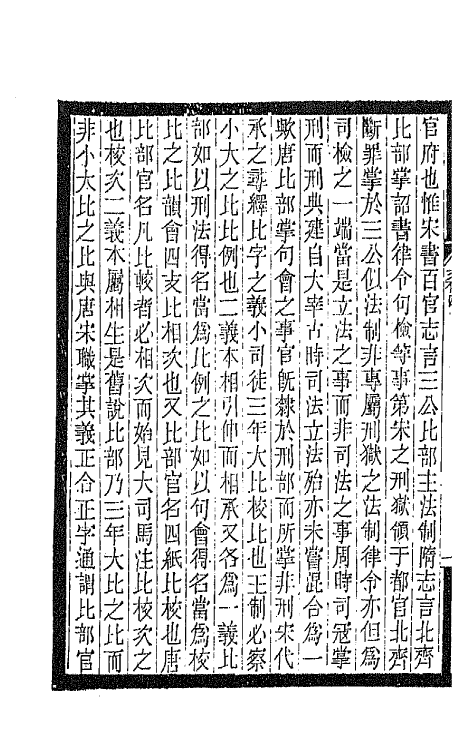 官府也惟宋書百官志言三公比部主法制隋志言北齊
比部掌詔書律令句檢等事第宋之刑獄領于都官北齊
斷罪掌於三公似法制非專屬刑獄之法制律令亦但爲
司檢之一端當是立法之事而非司法之事周時司冦掌
刑而刑典建自大宰古時司法立法殆亦未嘗混合爲一
歟唐比部掌句會之事官旣隸於刑部而所掌非刑宋代
承之尋釋比字之義小司徒三年大比校比也王制必察
小大之比比例也二義本相引伸而相承又各爲一義比
部如以刑法得名當爲比例之比如以句會得名當爲校
比之比韻會四支比相次也又比部官名四紙比校也唐
比部官名凡比較者必相次而始見大司馬注比校次之
也校次二義本屬相生是舊說比部乃三年大比之比而
非小大比之比與唐宋職掌其義正合正字通謂比部官